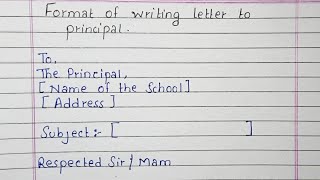 Format of writing letter to
principal.
To,
The Principal,
[Name of the School]
[Address]
Subject:- [ ]
Respected Sir/Mam